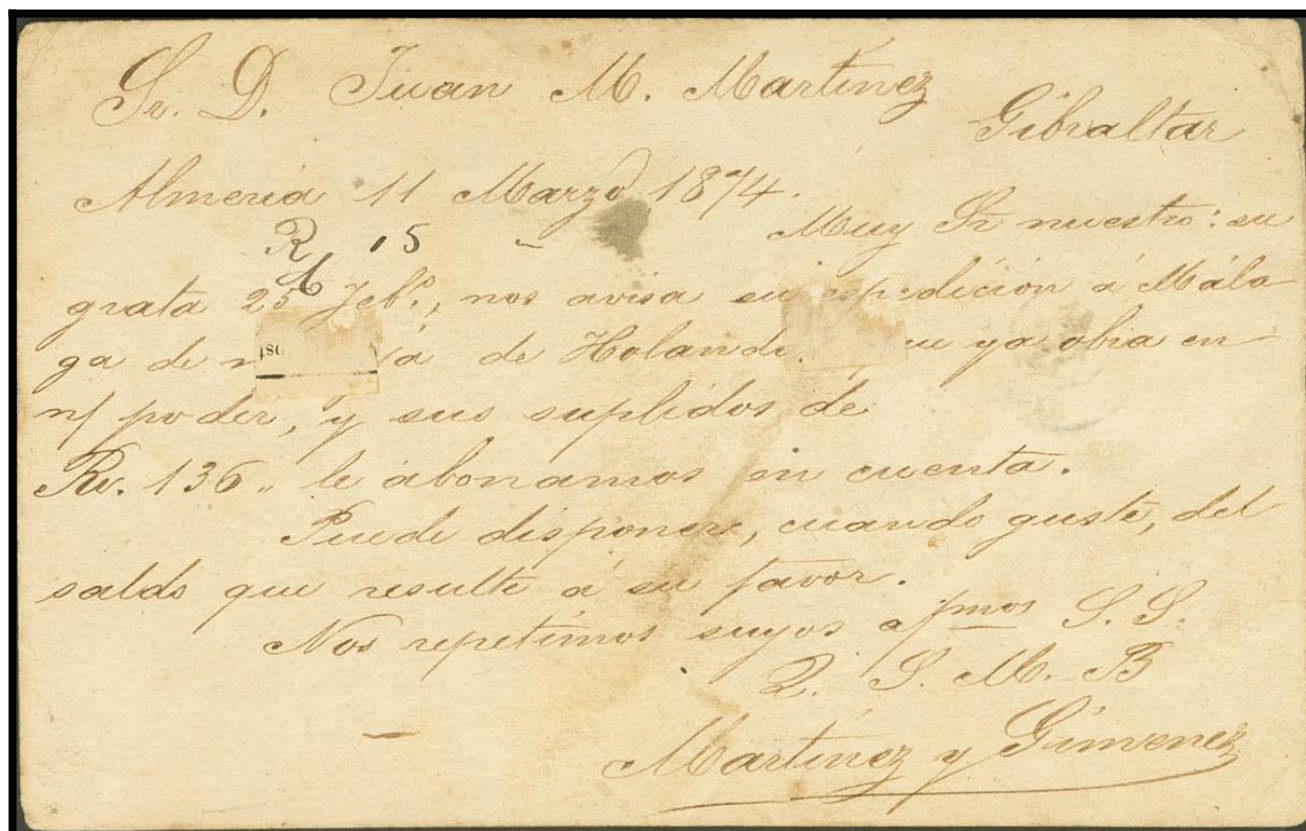 Sr. D. Juan M. Martinez
Gibraltar
Almeria 11 Marzo 1874.
R 15
Muy Sr nuestro: su
grata 25 Feb.º, nos avisa su expedición á Mála
ga de de Holanda ya obra en
n/ poder, y sus suplidos de
Rv. 136 „ le abonamos en cuenta.
Puede disponer, cuando guste, del
saldo que resulte á su favor.
Nos repetimos suyos afmos S. S.
Q. S. M. B
Martinez y Gimenez